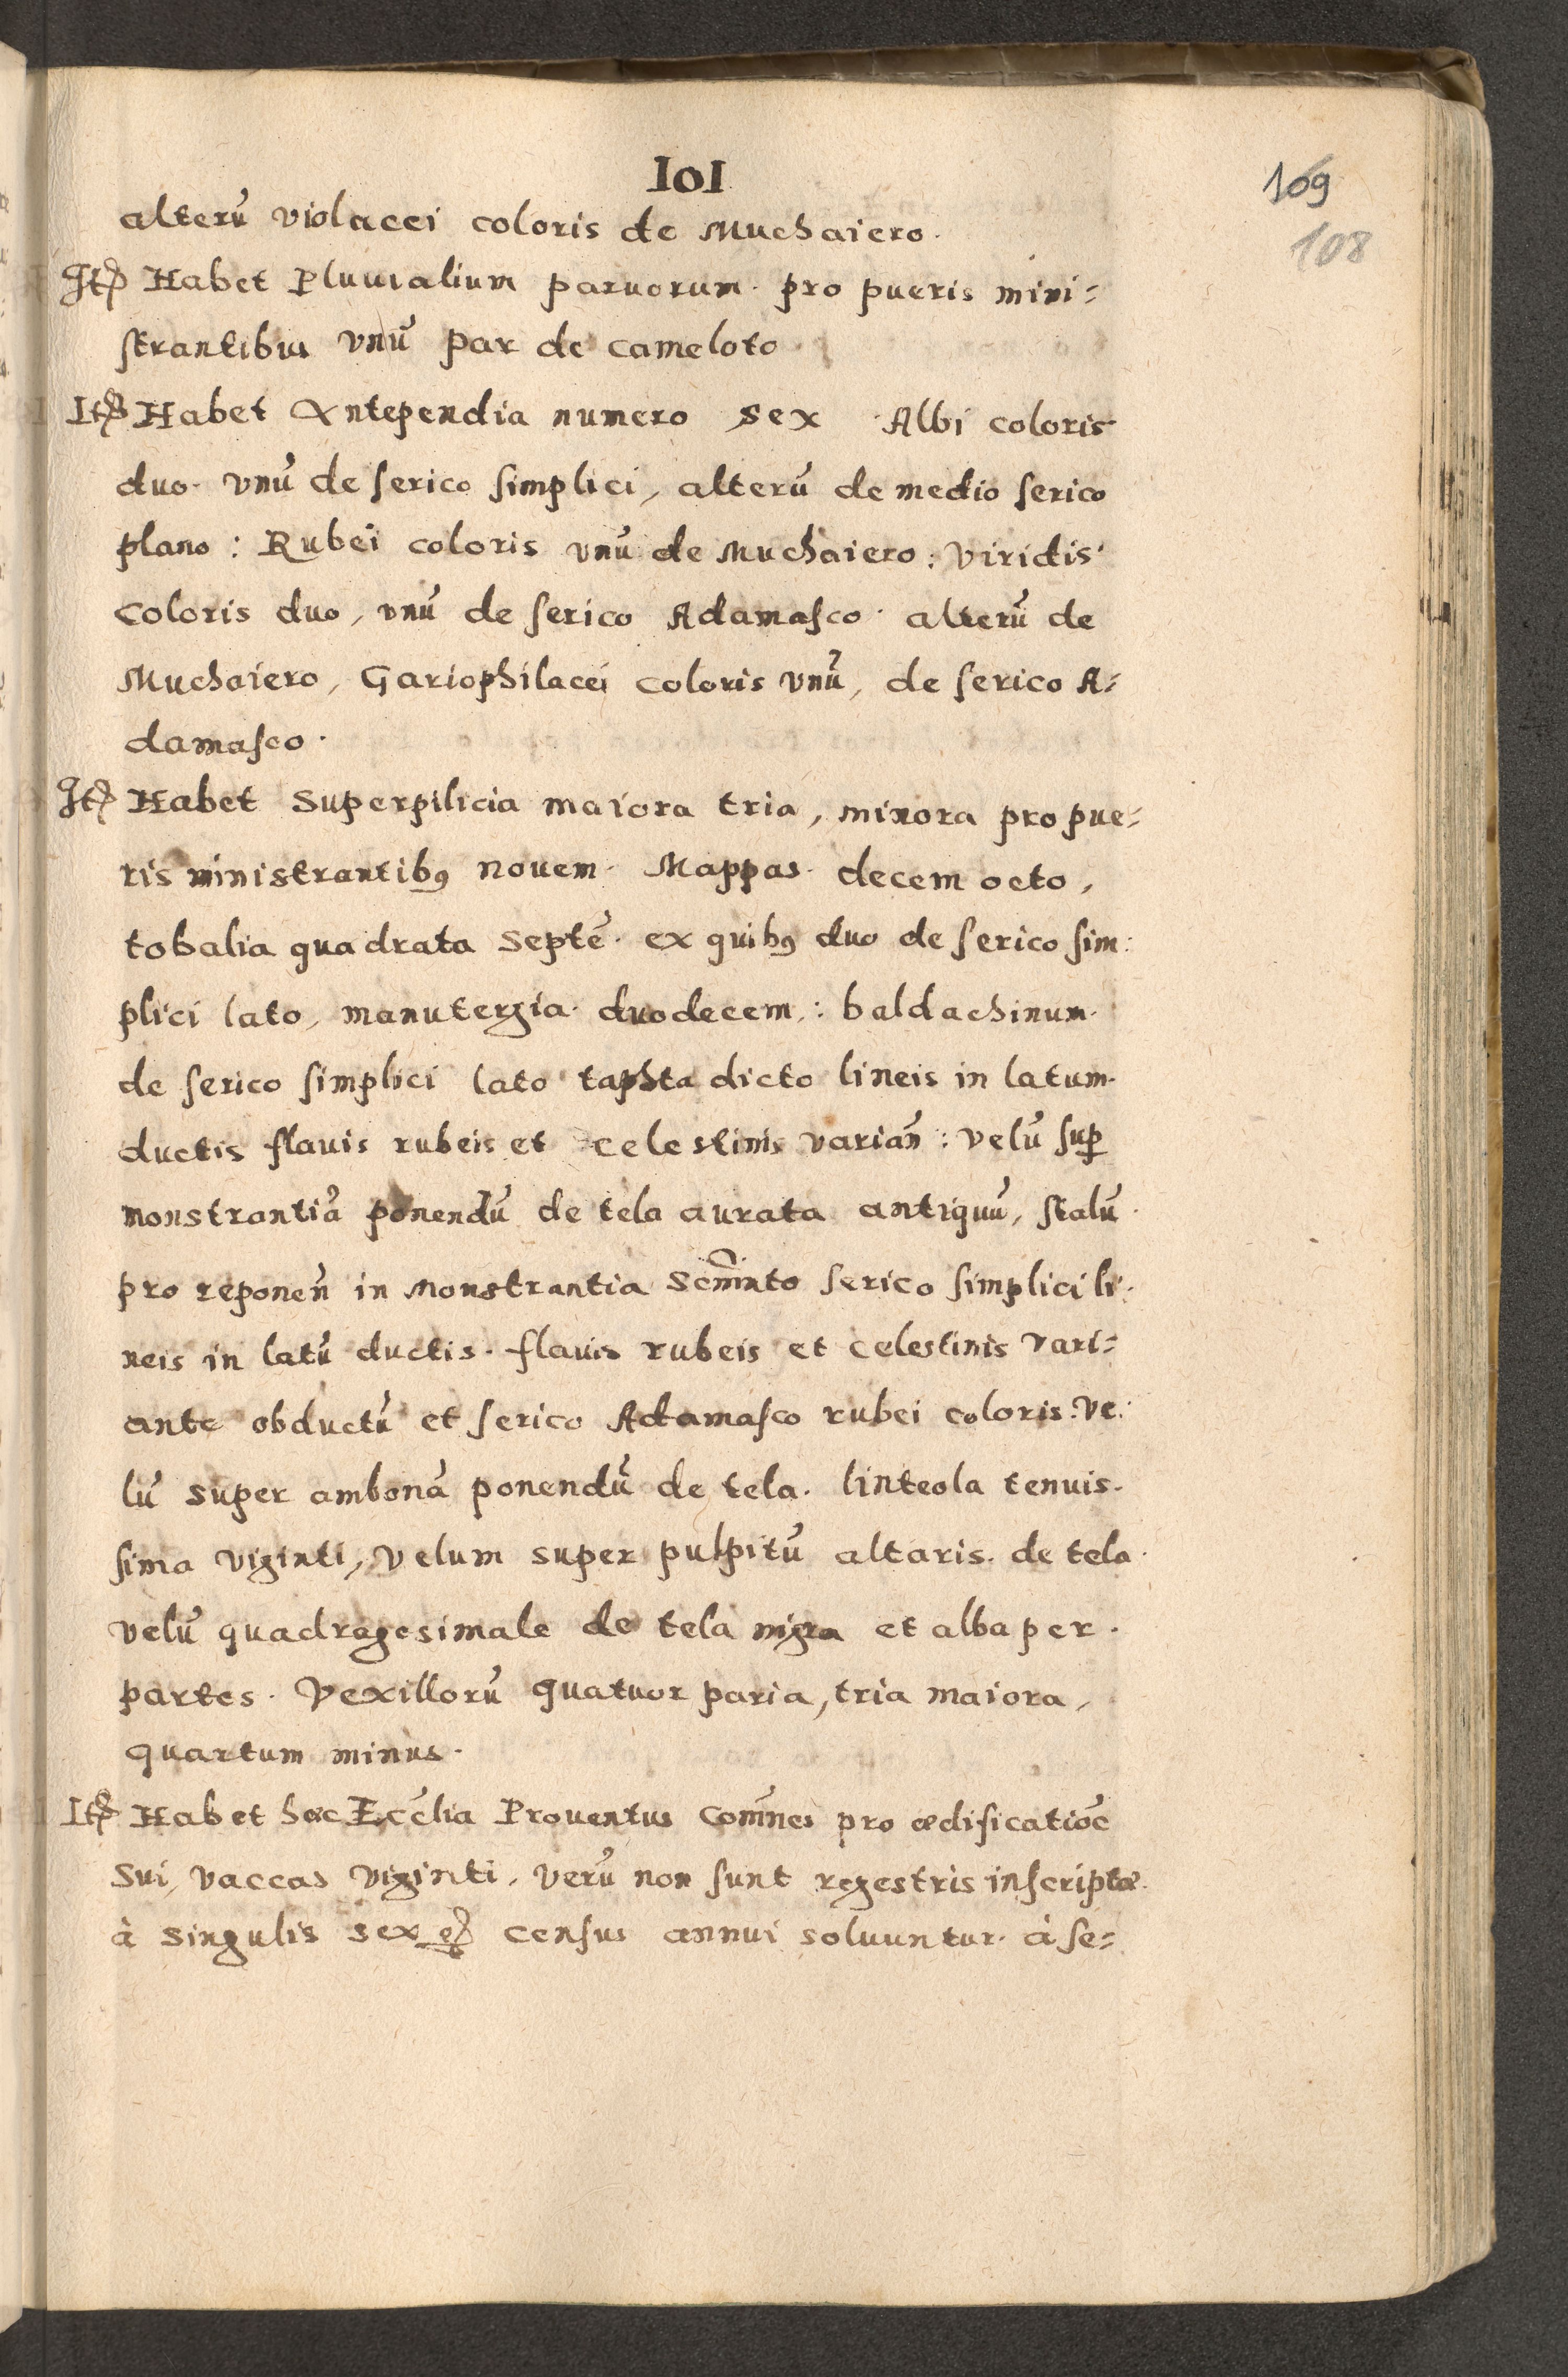 101
109
108
alterū violacei coloris de Muchaiero.
Itē Habet Pluuialium paruorum. pro pueris mini=
strantibus vnū par de cameloto
Itē Habet Antependia numero sex. Albi coloris
duo. vnū de serico simplici, alterū de medio serico
plano: Rubei coloris vnū de Muchaiero: viridis
coloris duo, vnū de serico Adamasco. alterū de
Muchaiero, Gariophilacei coloris vnū, de serico A=
damasco.
Itē Habet superpilicia maiora tria, minora pro pue=
ris ministrantibꝰ nouem. Mappas. decem octo,
tobalia quadrata septē. ex quibꝰ duo de serico sim:
plici lato, manutergia. duodecem: baldachinum.
de serico simplici lato taphta dicto lineis in latum.
ductis flauis rubeis et celestinis varian̄: velū sup̲
monstrantiā ponendū de tela aurata antiquū, stalū.
pro reponen̄ in Monstrantia serico simplici li:
neis in latū ductis. flauis rubeis et celestinis vari=
ante obductū et serico Adamasco rubei coloris: ve:
lū super ambonā ponendū de tela. linteola tenuis.
sima viginti, velum super pulpitū altaris. de tela.
velū quadragesimale de tela nigra et alba per.
partes. Vexillorū quatuor paria, tria maiora,
quartum minus.
Itē Habet hæc Eccl̄ia Prouentus com̄nes pro ædificatiōe
sui, vaccas viginti, verū non sunt regestris inscriptæ.
à singulis sex census annui soluuntur. à se=